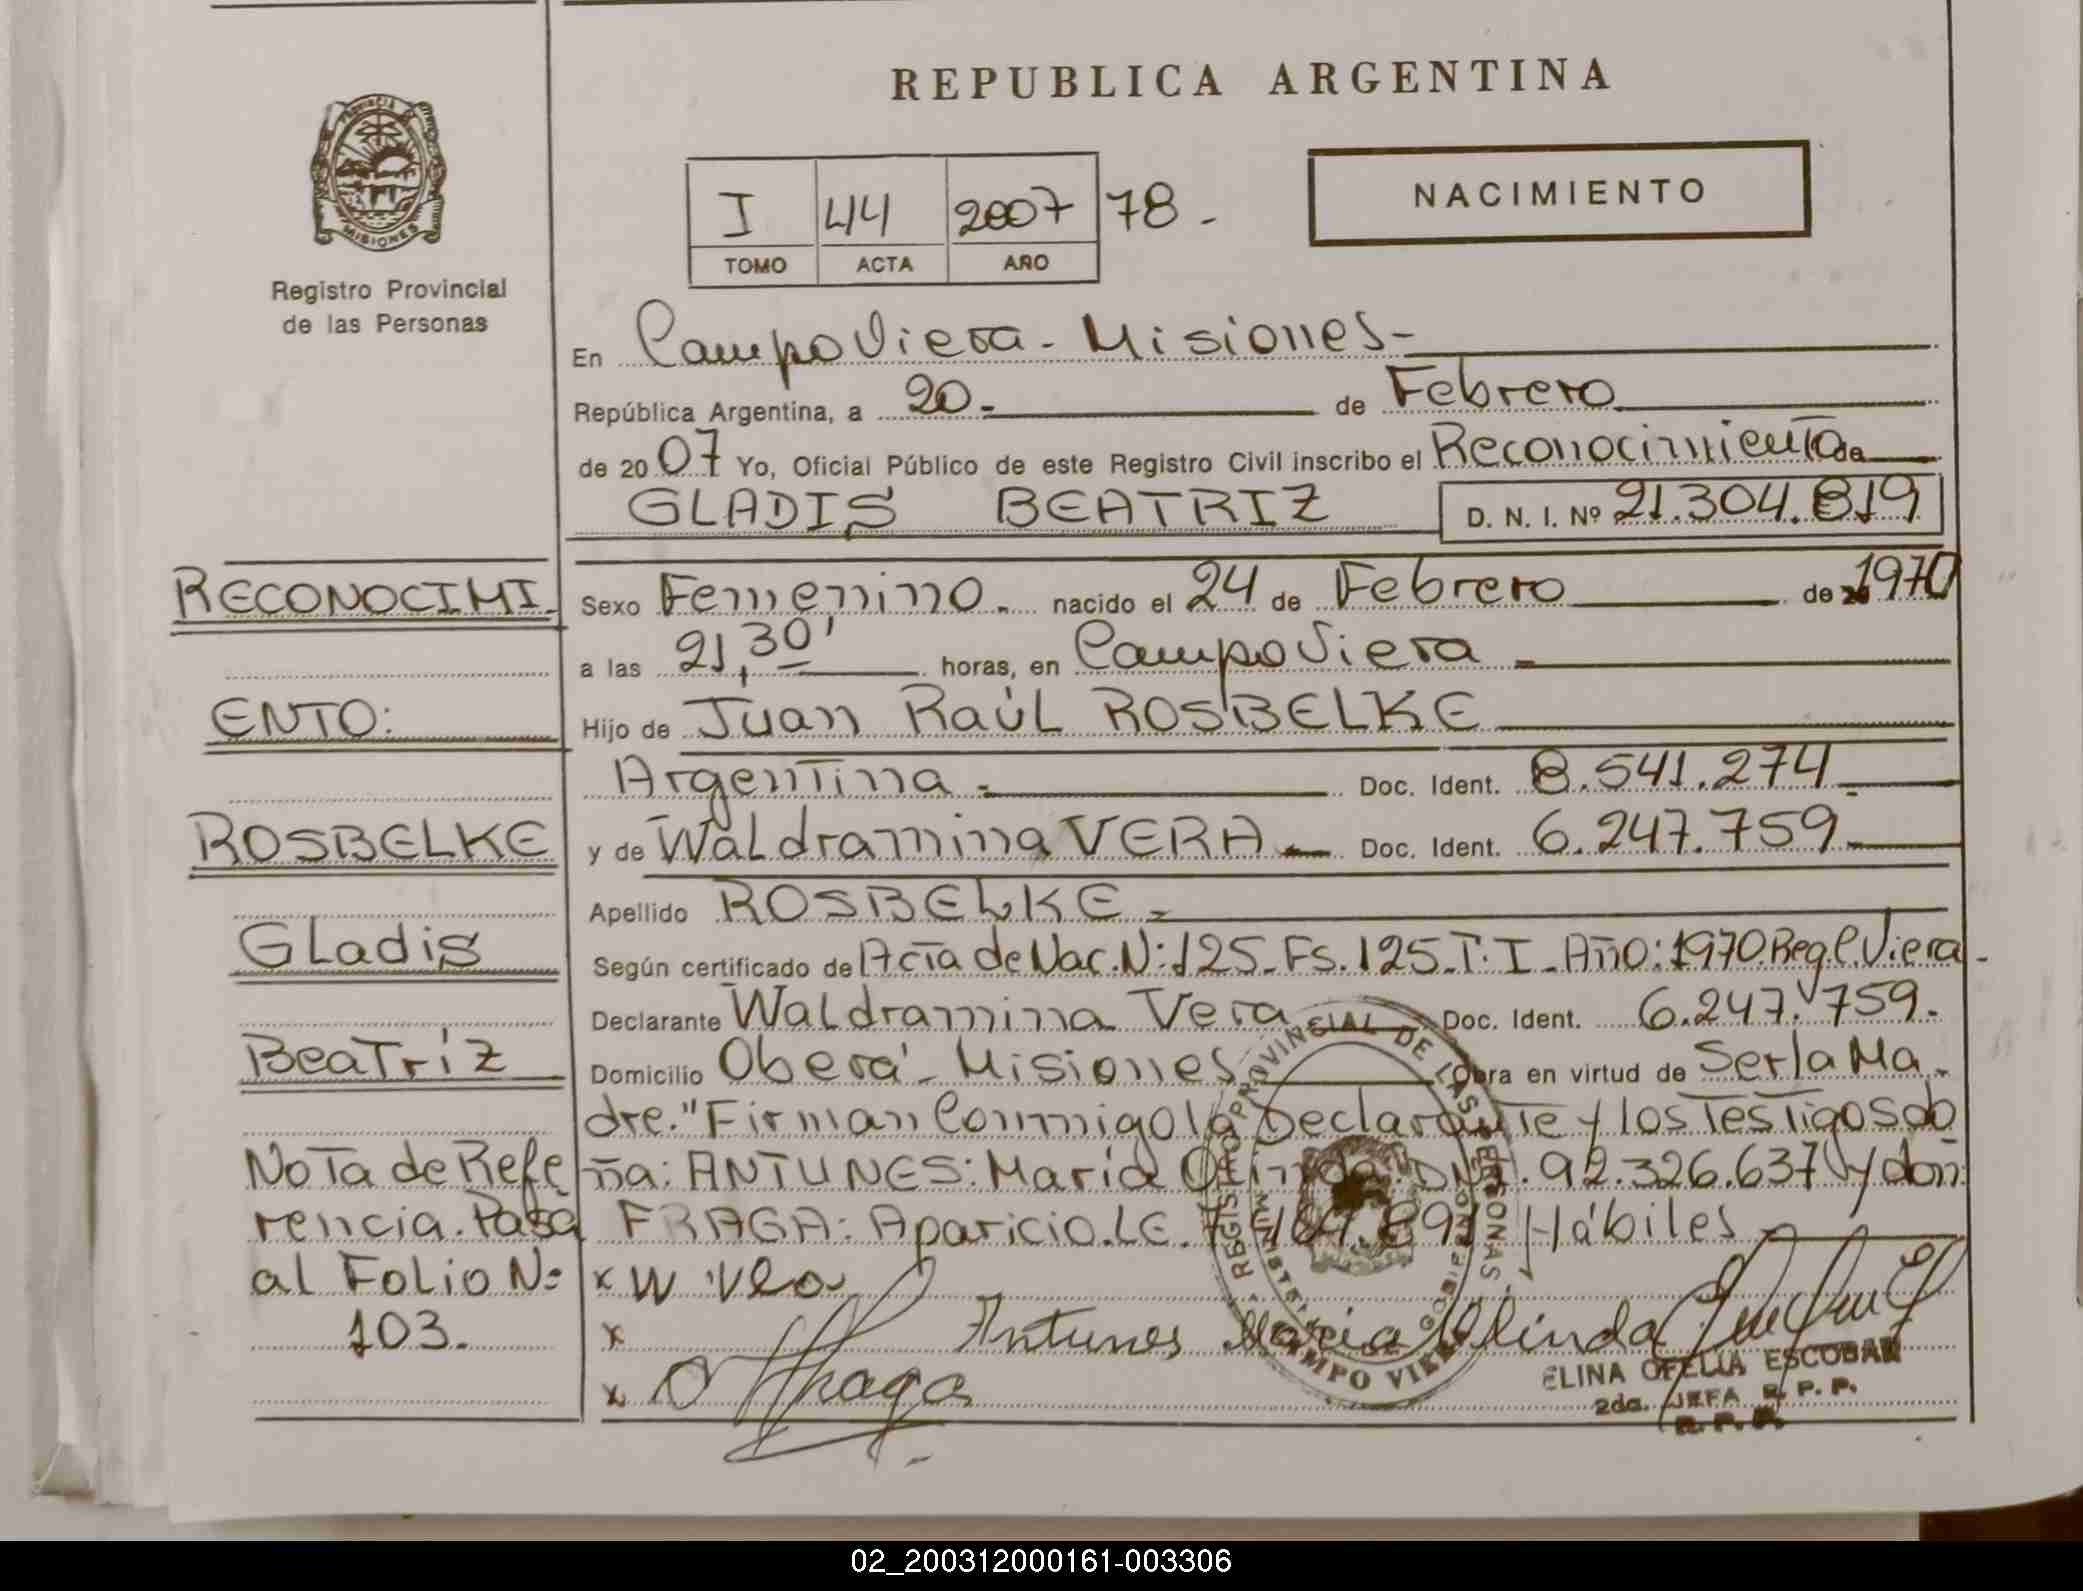 REPUBLICA ARGENTINA
PROVINCIA DE
MISIONES
Registro Provincial
de las Personas
I 44 2007 78.-
TOMO ACTA AÑO
NACIMIENTO
En Campo Viera - Misiones -
República Argentina, a 20.- de Febrero
de 20 07 Yo, Oficial Público de este Registro Civil inscribo el Reconocimiento de
GLADIS BEATRIZ D. N. I. Nº 21.304.819
Sexo Femenino.- nacido el 24 de Febrero de 1970
a las 21,30' horas, en Campo Viera -
Hijo de Juan Raúl ROSBELKE
Argentina.- Doc. Ident. 8.541.274.-
y de Waldramina VERA.- Doc. Ident. 6.247.759.-
Apellido ROSBELKE.-
Según certificado de Acta de Nac. N: 125-Fs. 125-T. I - Año: 1970. Reg. C. Viera.-
Declarante Waldramina Vera Doc. Ident. 6.247.759.
Domicilio Oberá - Misiones Obra en virtud de Ser la Ma-
dre." Firman Conmigo la Declarante y los Testigos do
ña: ANTUNES: María Olinda. DNI. 92.326.637 y don
FRAGA: Aparicio. LE. Hábiles
x W
x Antunes Maria Olinda
x Fraga
RECONOCIMI-
ENTO:
ROSBELKE
Gladis
Beatríz
Nota de Refe
rencia. Pasa
al Folio N:
103.
REGISTRO PROVINCIAL DE LAS PERSONAS
CAMPO VIERA
ELINA OFELIA ESCOBAR
2da. JEFA R. P. P.
R. P. P.
02_200312000161-003306